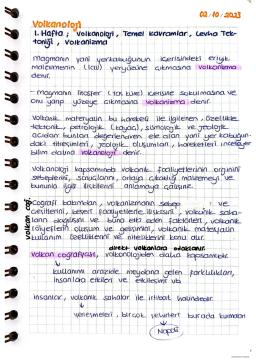 02.10.2023
Volkanoloji
1. Hafta; Volkanoloji, Temel kavramlar, Levha Tek-
toniği, Volkanizma
Magmanın yani yerkabuğunun içerisindeki eriyik
malzemenin (lav) yeryüzüne çıkmasına volkanizma
denir.
- Magmanın litosfer içerisine sokulmasına ve
onu yarıp yüzeye çıkmasına volkanizma denir.
Volkanik materyalin bu hareketi ile ilgilenen, özellikle
tektonik, petrolojik (kayaç), sismolojik ve jeolojik
açıdan bunları değerlendiren ele alan yeri yerkabuğun-
daki titreşimleri, jeolojik oluşumları, hareketleri inceleyen
bilim dalına volkanoloji denir.
Volkanoloji kapsamında volkanik faaliyetlerinin orijinini
sebeplerini, sonuçlarını, ortaya çıkardığı malzemeyi ve
bununla ilgili ürünlerini anlamaya çalışır.
volkan coğ.
Coğrafi bakımdan, volkanizmanın sebep ve
çeşitlerini, beşeri faaliyetlerle ilişkisini, volkanik saha-
ların dağılışını ve buna etki eden faktörleri, volkanik
rölyeflerin oluşum ve gelişimini, volkanik materyalin
kullanım özelliklerini ve niteliklerini konu alır.
direkt volkanlara odaklanır.
Volkan coğrafyası, volkanolojiden daha kapsamlıdır.
↓
kullanımı arazide meydana gelen farklılıkları,
insanlara etkileri ve etkileşimi vb.
İnsanlar, volkanik sahalar ile irtibat halindedir.
↓
yerleşmeleri, birçok şehirler burada kurulan
↓
Napoli